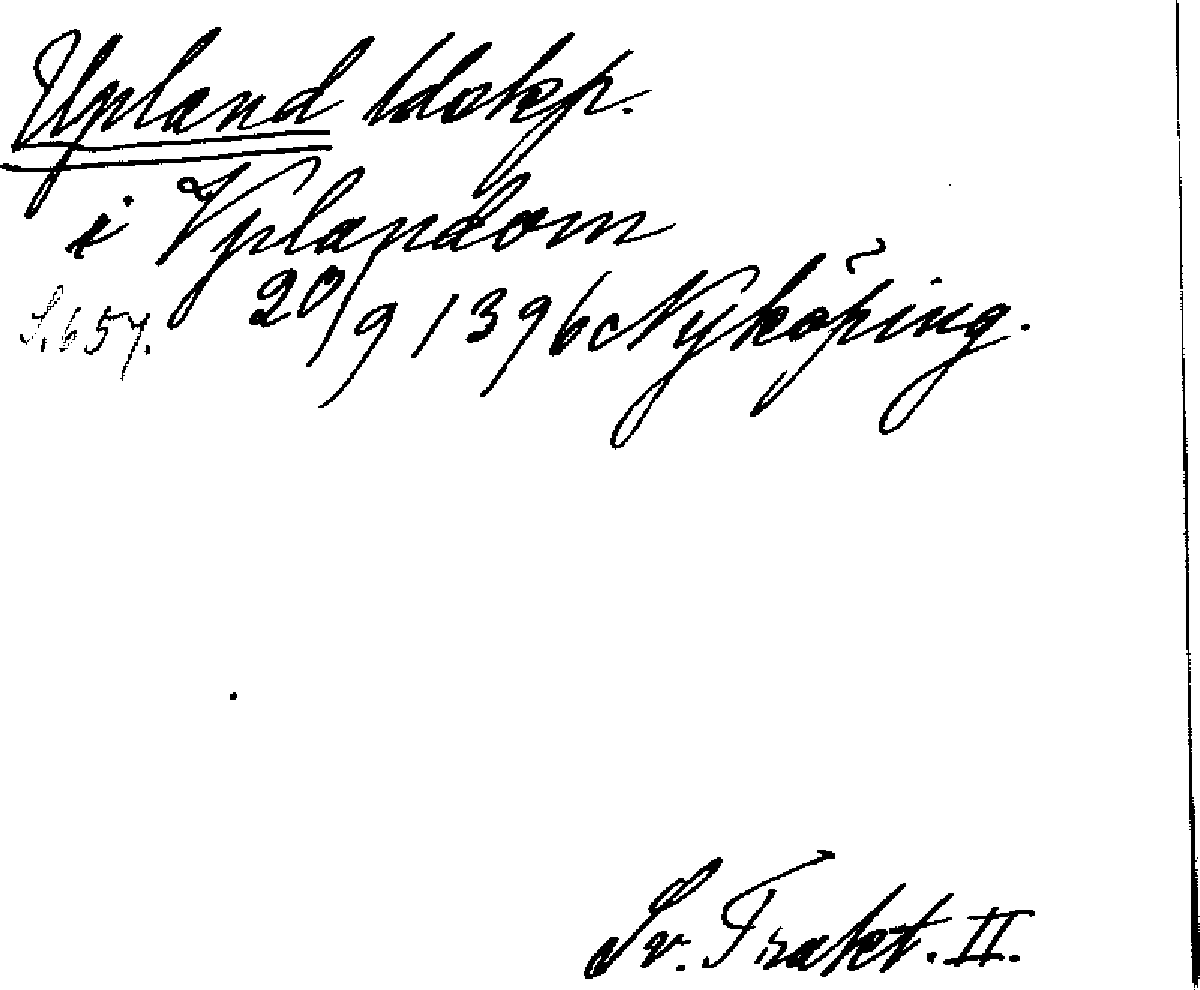 Upland ldskp.
i Vplandom
S. 657. 20/9 1396 Nyköping.
Sv. Trakt. II.